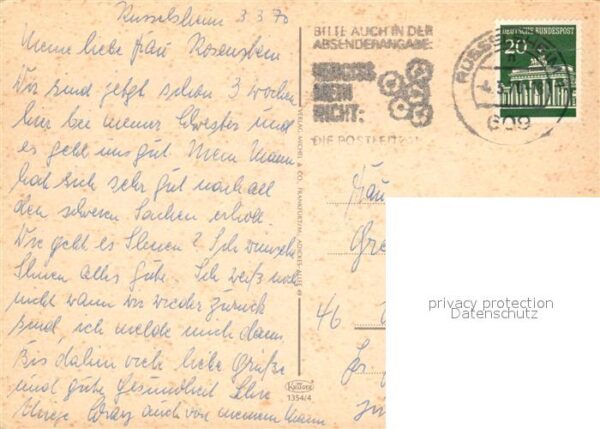 Rüsselsheim 3 3 70
Meine liebe Frau Rosenstein
Wir sind jetzt schon 3 Wochen
hier bei meiner Schwester und
es geht uns gut. Mein Mann
hat sich sehr gut nach all
den schweren Sachen erholt
Wie geht es Ihnen? Ich wünsche
Ihnen alles Gute. Ich weiß noch
nicht wann wir wieder zurück
sind, ich melde mich dann.
Bis dahin viele liebe Grüße
und gute Gesundheit Ihre
auch von meinem Mann
BITTE AUCH IN DER
ABSENDERANGABE:
VERGISS
MEIN
NICHT:
DIE POSTLEITZAHL
RÜSSELSHEIM
609
DEUTSCHE BUNDESPOST
20
VERLAG MICHEL & CO., FRANKFURT/M., ADICKES-ALLEE
Frau
46
privacy protection
Datenschutz
1354/4